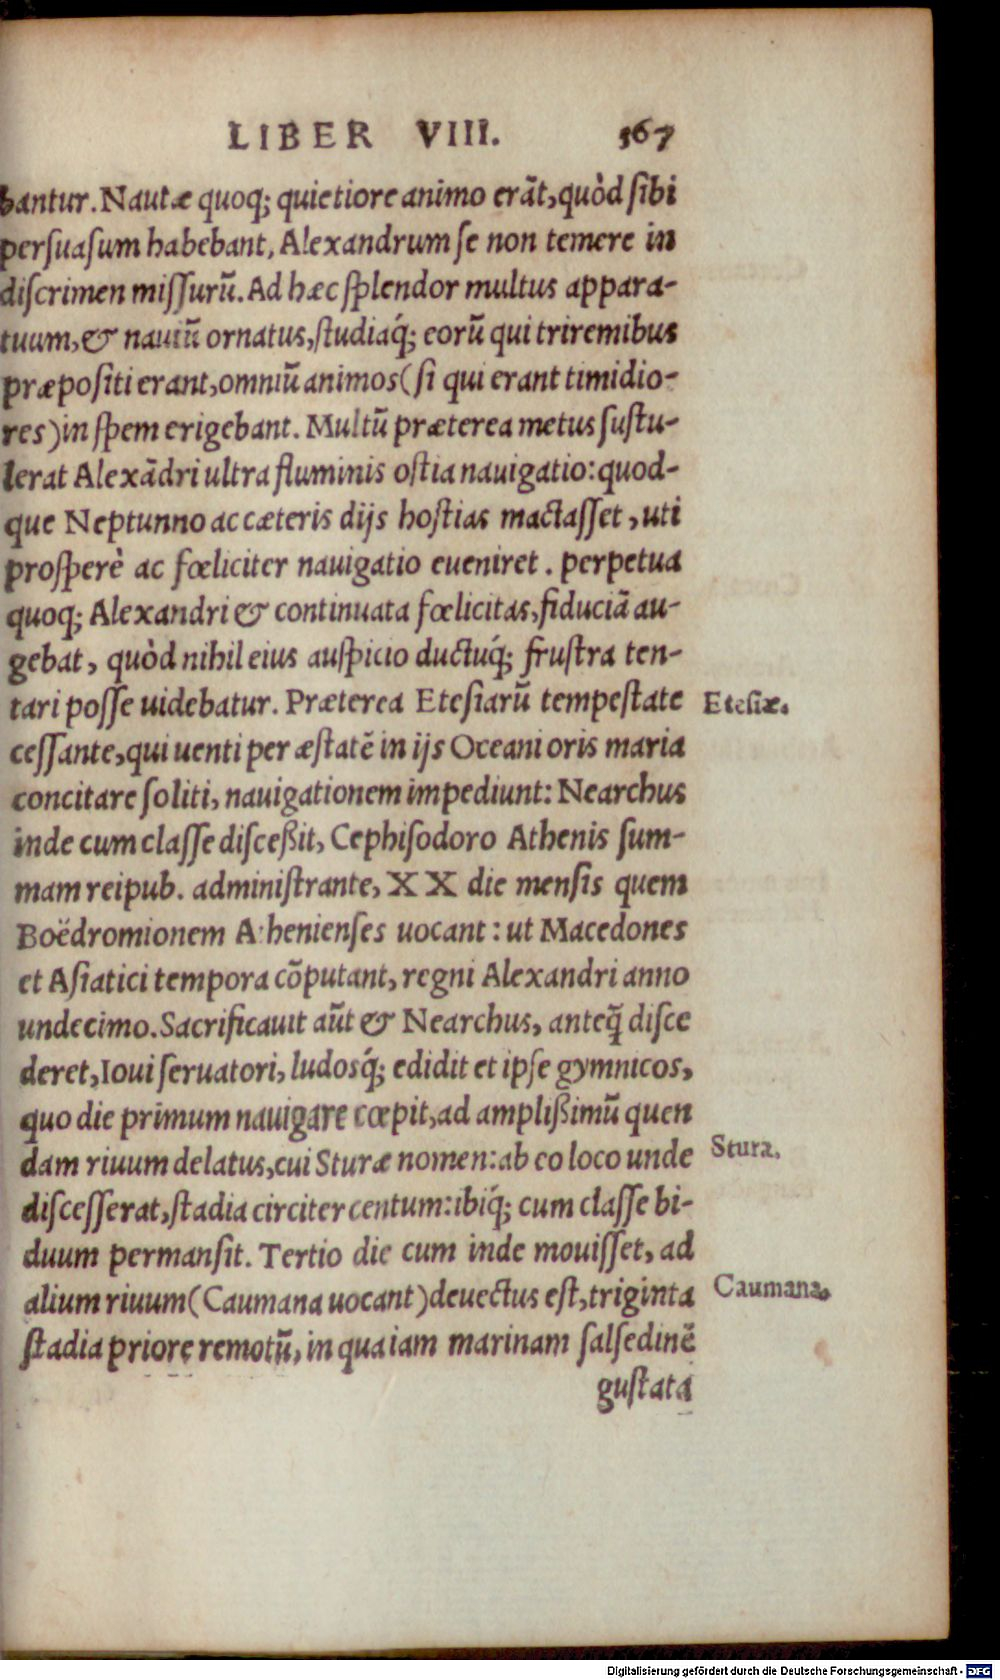 LIBER VIII. 367
bantur. Nautæ quoq; quietiore animo erāt, quòd ſibi
perſuaſum habebant, Alexandrum ſe non temere in
diſcrimen miſſurū. Ad hæc ſplendor multus appara-
tuum, & nauiū ornatus, ſtudiaq́; eorū qui triremibus
præpoſiti erant, omniū animos (ſi qui erant timidio-
res) in ſpem erigebant. Multū præterea metus ſuſtu-
lerat Alexādri ultra fluminis oſtia nauigatio: quod-
que Neptunno ac cæteris dijs hoſtias mactaſſet, uti
proſperè ac fœliciter nauigatio eueniret. perpetua
quoq; Alexandri & continuata fœlicitas, fiduciā au-
gebat, quòd nihil eius auſpicio ductuq́; fruſtra ten-
tari poſſe uidebatur. Præterea Eteſiarū tempeſtate
Eteſiæ.
ceſſante, qui uenti per æſtatē in ijs Oceani oris maria
concitare ſoliti, nauigationem impediunt: Nearchus
inde cum claſſe diſceßit, Cephiſodoro Athenis ſum-
mam reipub. adminiſtrante, XX die menſis quem
Boëdromionem Athenienſes uocant: ut Macedones
et Aſiatici tempora cōputant, regni Alexandri anno
undecimo. Sacrificauit aūt & Nearchus, anteq̃ diſce
deret, Ioui ſeruatori, ludosq́; edidit et ipſe gymnicos,
quo die primum nauigare cœpit, ad amplißimū quen
dam riuum delatus, cui Sturæ nomen: ab eo loco unde
Stura.
diſceſſerat, ſtadia circiter centum: ibiq́; cum claſſe bi-
duum permanſit. Tertio die cum inde mouiſſet, ad
alium riuum (Caumana uocant) deuectus eſt, triginta
Caumana.
ſtadia priore remotū, in qua iam marinam ſalſedinē
guſtata
Digitalisierung gefördert durch die Deutsche Forschungsgemeinschaft - DFG